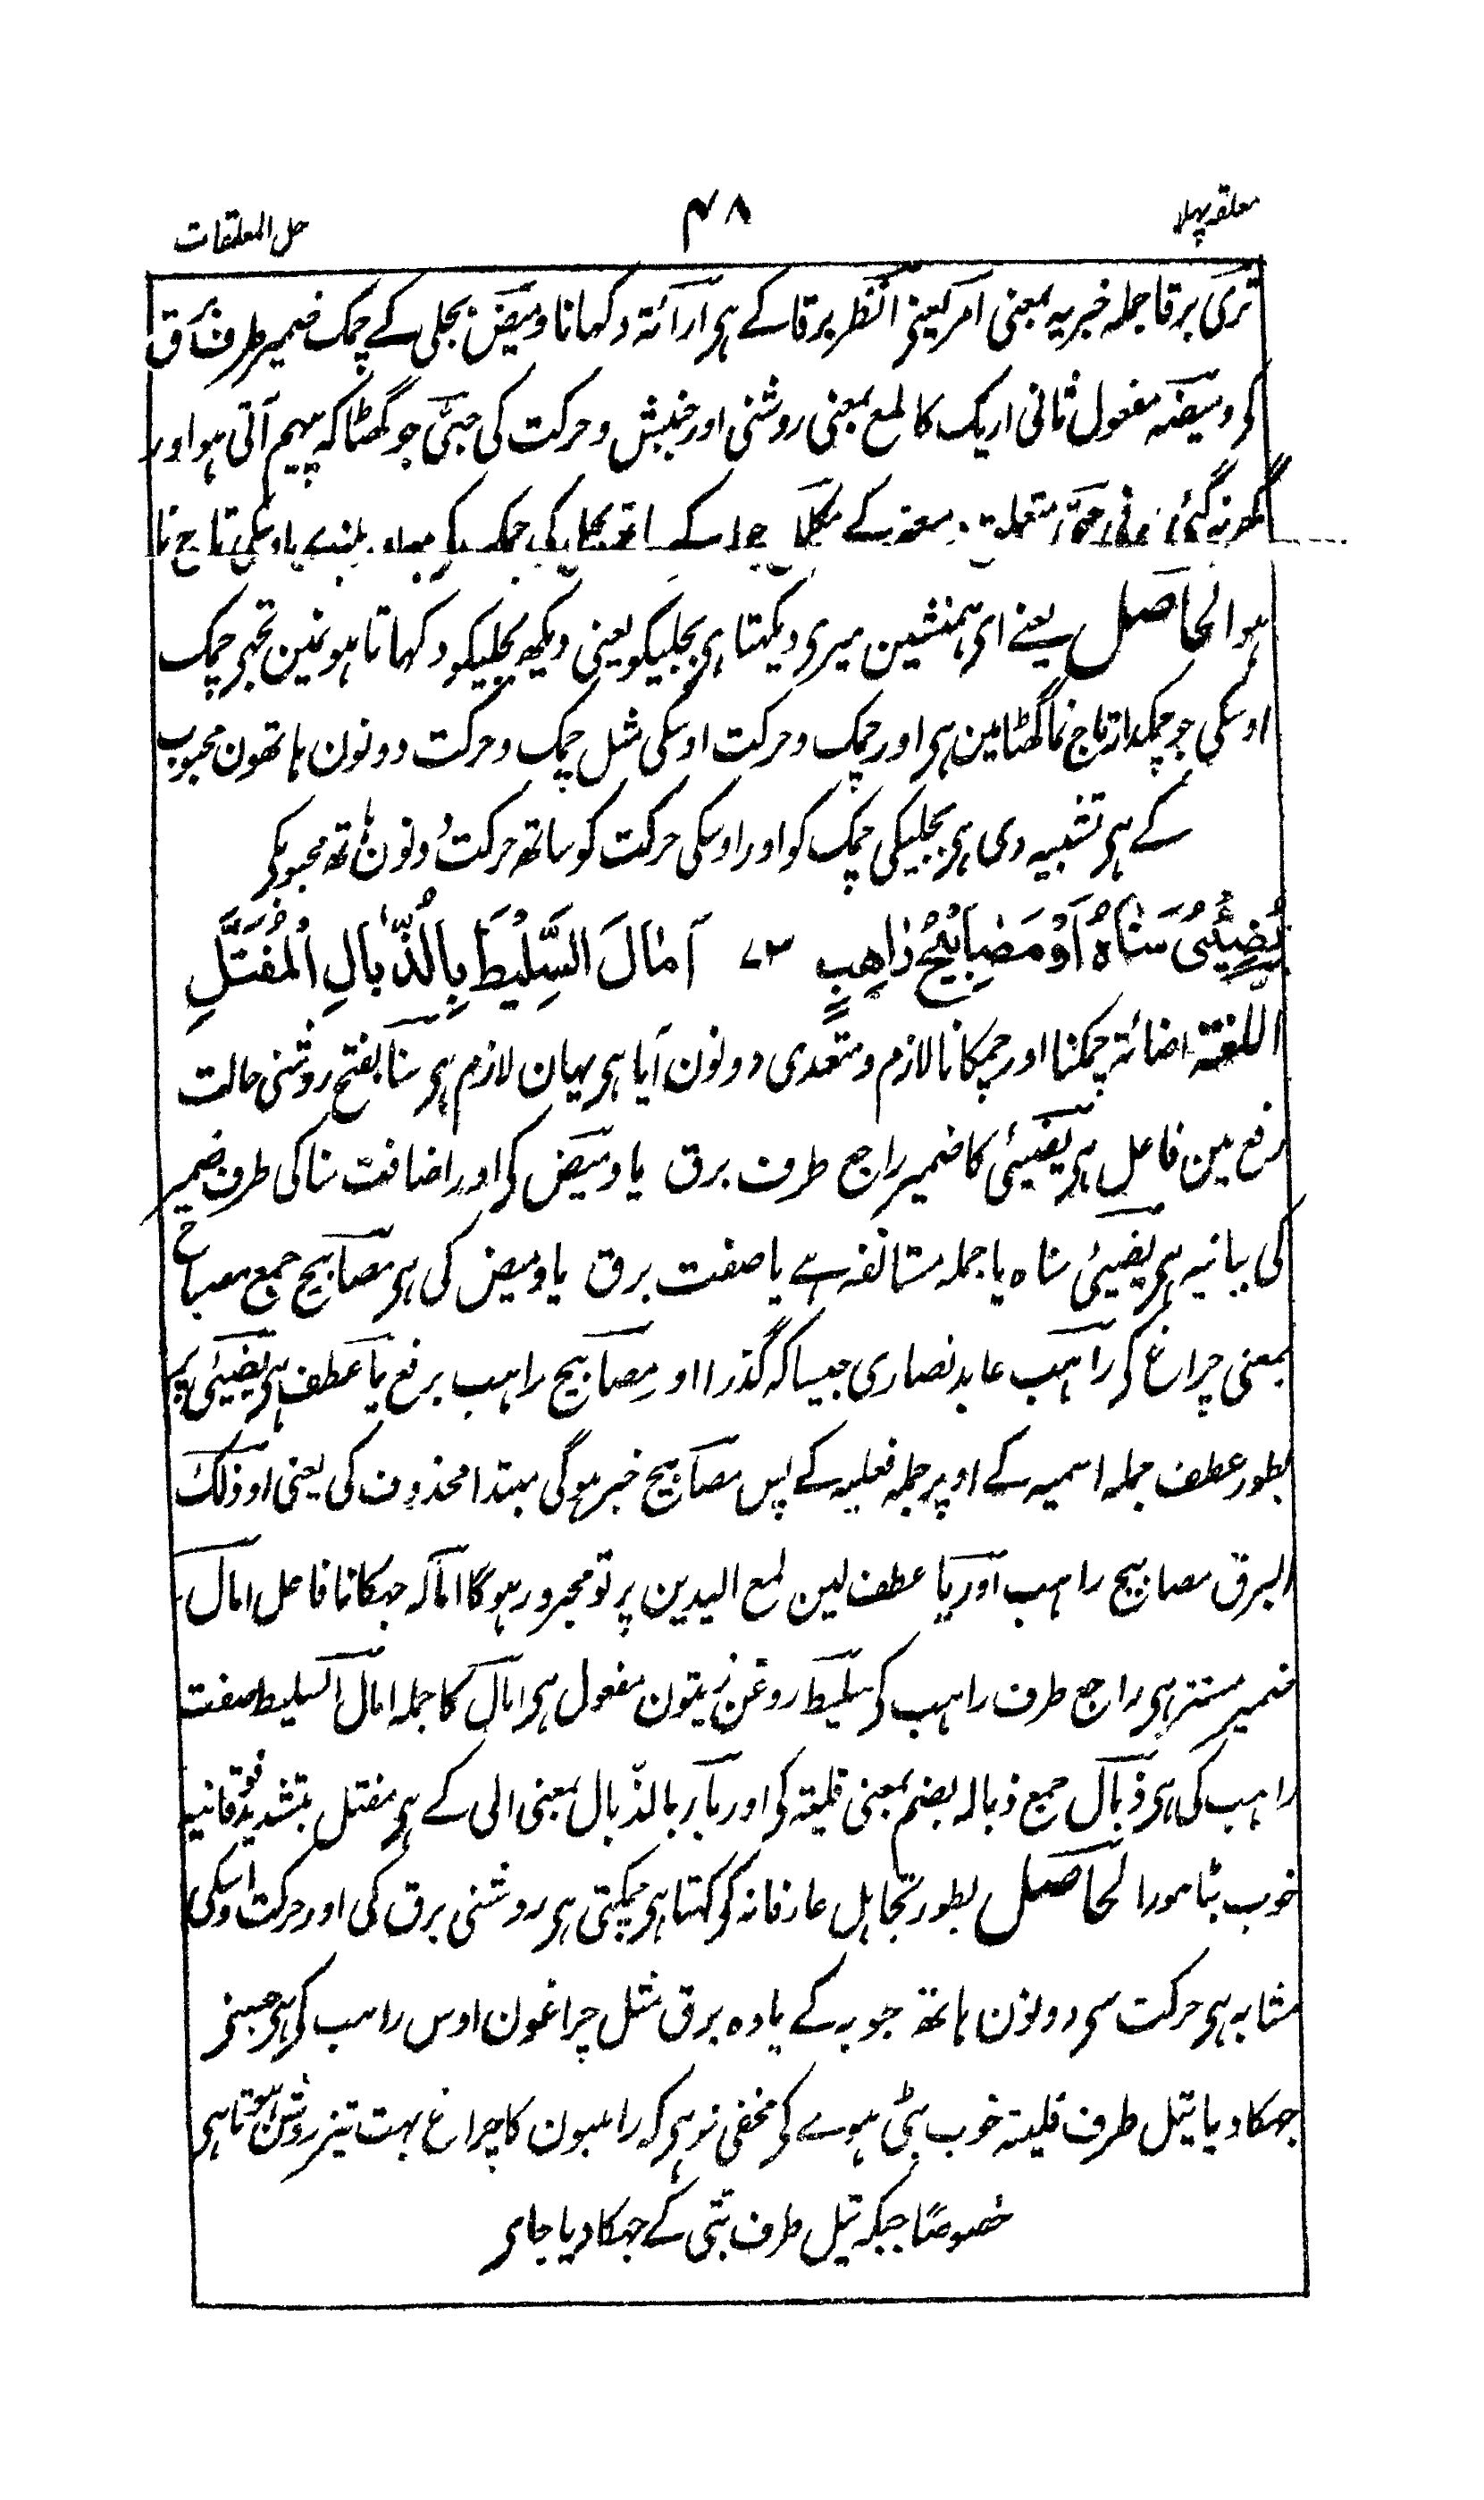 معلقہ پہلا
۴۸
حل المعلقات
تری برقا جملہ خبریہ بمعنی امر یعنے انظر برقا کے ہی اراءۃ دکہانا ومیض بجلی کے چمک ضمیر طرف برق
کی ومیضہ مفعول ثانی اریک کا لمع بمعنی روشنی اور جنبش و حرکت کی حبی جو گھٹا کہ پیہم آتی ہو اور
گھر نہ گئی کے مکلل جو کے بجلی کی چمک تاج نما
ہو الحاصل یعنے ای ہمنشین میری دیکہتا ہی بجلیکو یعنی دیکھ بجلیکو دکہاتا ہونمین تجہی چمک
اوسکی جو چمکدار تاج نما گھٹا مین ہی اور چمک و حرکت اوسکی مثل چمک و حرکت دونون ہاتھون محبوب
کے ہی تشبیہ دی ہی بجلیکی چمک کو اور اوسکی حرکت کو ساتھ حرکت دونون ہاتھ محبوبکی
يُضِيْئُ سَنَاهُ اَوْ مَصَابِيْحُ رَاهِبٍ ۷۲ اَمَالَ السَّلِيْطَ بِالذُّبَالِ الْمُفَتَّلِ
اللغۃ اضائۃ چمکنا اور چمکانا لازم و متعدی دونون آیا ہی یہان لازم ہی سنا بفتح روشنی حالت
رفع مین فاعل ہی یضیئی کا ضمیر راجع طرف برق یا ومیض کی اور اضافت سنا کی طرف ضمیر
کی بیانیہ ہی یضیئی سناہ یا جملہ مستانفہ ہے یا صفت برق یا ومیض کی ہی مصابیح جمع مصباح
بمعنی چراغ کی راہب عابد نصاری جیسا کہ گذرا او مصابیح راہب برفع یا عطف ہی یضیئی پر
بطور عطف جملہ اسمیہ کے اوپر جملہ فعلیہ کے پس مصابیح خبر ہوگی مبتدا محذوف کی یعنی او ذلک
البرق مصابیح راہب اور یا عطف لین لمع الیدین پر تو مجرور ہوگا امالہ جہکانا فاعل امال
ضمیر مستتر ہی راجع طرف راہب کی سلیط روغن زیتون مفعول ہی امال کا جملہ امال السلیط صفت
راہب کی ہی ذبال جمع ذبالہ بضم بمعنی فلیتہ کی اور بار بالذبال بمعنی الی کے ہی مفتل بتشدید فوقانیہ
خوب بٹا ہورا الحاصل بطور تجاہل عارفانہ کی کہتا ہی چمکتی ہی روشنی برق کی اور حرکت اوسکی
مشابہ ہی حرکت سی دونون ہاتھ جوبہ کے یا وہ برق مثل چراغون اوس راہب کی ہی جسنی
جہکا دیا تیل طرف فلیتہ خوب بٹی ہوے کی مخفی نرہی کہ راہبون کا چراغ بہت تیز روشن ہوتا ہی
خصوصًا جبکہ تیل طرف بتی کے جہکا دیا جای